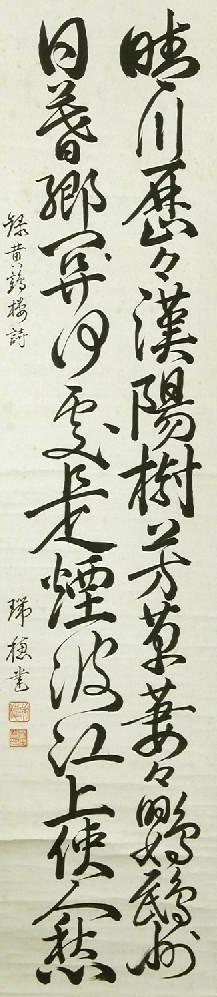 晴川歴々漢陽樹芳草萋々鸚鵡州
日暮郷関何処是煙波江上使人愁
録黄鶴楼詩
瑞穂書